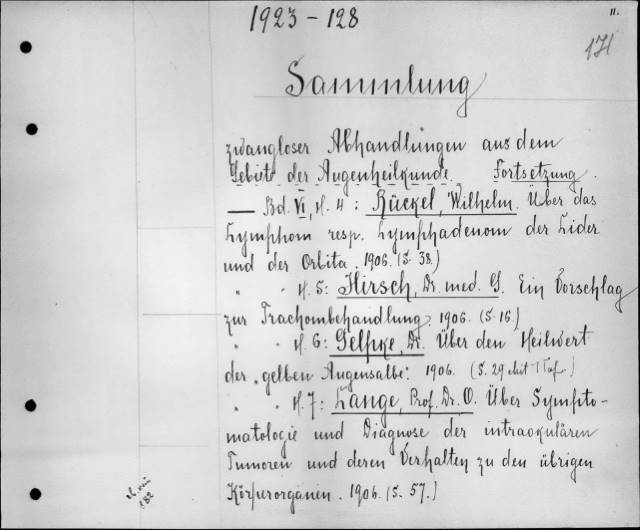 1923 - 128
11.
171
Sammlung
zwangloser Abhandlungen aus dem
Gebiete der Augenheilkunde. Fortsetzung.
— Bd. VI, H. 4: Rückel, Wilhelm. Über das
Lymphom resp. Lymphadenom der Lider
und der Orbita. 1906. (S. 38.)
" " H. 5: Hirsch, Dr. med. G. Ein Vorschlag
zur Trachombehandlung. 1906. (S. 16.)
" " H. 6: Gelpke, Dr. Über den Heilwert
der „gelben Augensalbe“. 1906. (S. 29 mit 1 Taf.)
" " H. 7: Lange, Prof. Dr. O. Über Sympto-
matologie und Diagnose der intraokulären
Tumoren und deren Verhalten zu den übrigen
Körperorganen. 1906. (S. 57.)
182